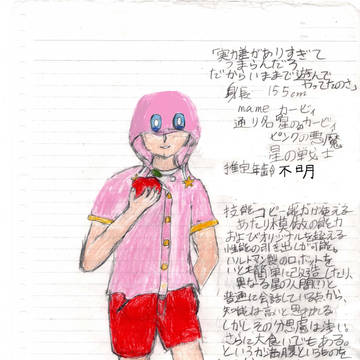 「実力差がありすぎて
つまらんだろ
だからいままで遊んで
やってたのさ」
身長 155cm
name カービィ
通り名 星のカービィ
ピンクの悪魔
星の戦士
推定年齢 不明
技能 コピー能力が使える
あたり模倣の能力
およびオリジナルを超える
性能の引き出しが可能、
ハルトマン製のロボットを
いとも簡単に改造したり、
異なる星の人間(?)と
普通に会話しているから、
知能は高いと思われる
しかしその分思慮は浅い。
さらに大食いでもある。